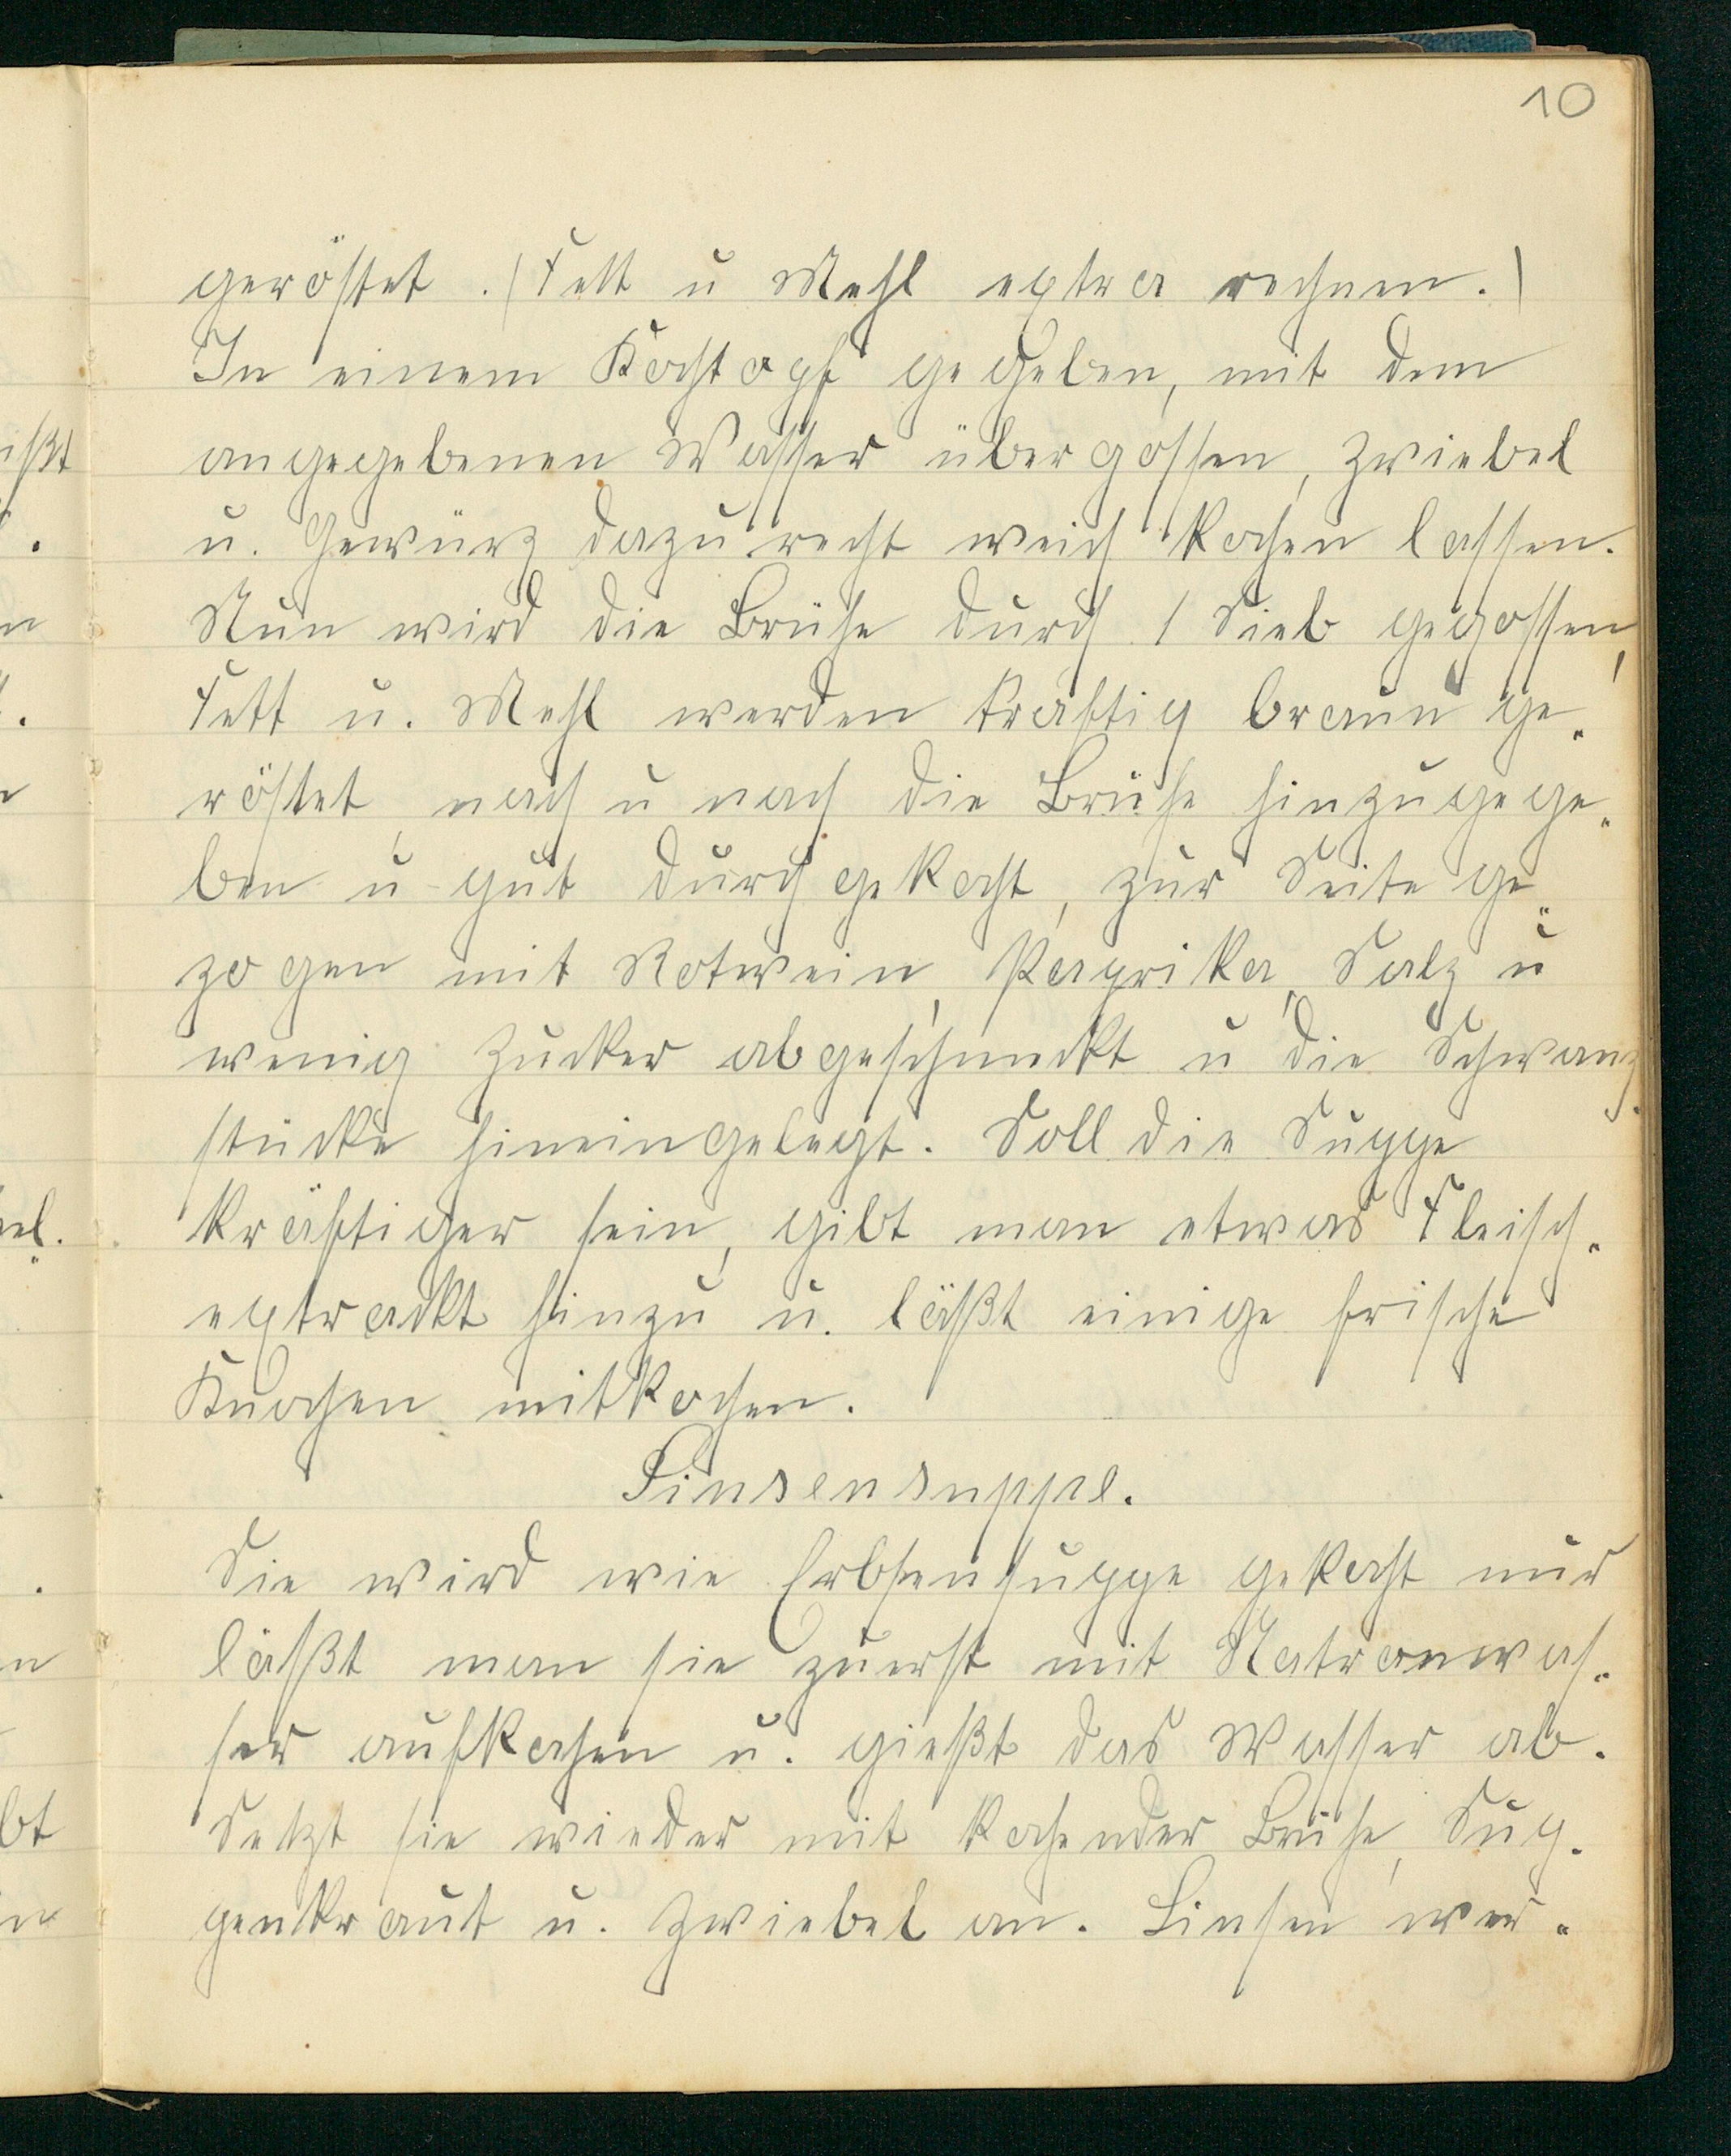 10
geröstet. (Fett u Mehl extra rechnen.)
In einem Kochtopf gegeben, mit dem
angegebenen Wasser übergossen, Zwiebel
u. Gewürz dazu recht weich kochen lassen.
Nun wird die Brühe durch 1 Sieb gegossen,
Fett u. Mehl werden kräftig braun ge-
röstet, nach u nach die Brühe hinzugege-
ben u gut durchgekocht, zur Seite ge-
zogen mit Rotwein, Paprika, Salz u
wenig Zucker abgeschmeckt u die Schwanz-
stücke hineingelegt. Soll die Suppe
kräftiger sein, gibt man etwas Fleisch-
extrackt hinzu u. läßt einige frische
Knochen mitkochen.
Linsensuppe.
Sie wird wie Erbsensuppe gekocht nur
läßt man sie zuerst mit Natronwas-
ser aufkochen u. gießt das Wasser ab.
Setzt sie wieder mit kochender Brühe, Sup-
penkraut u. Zwiebel an. Linsen wer-